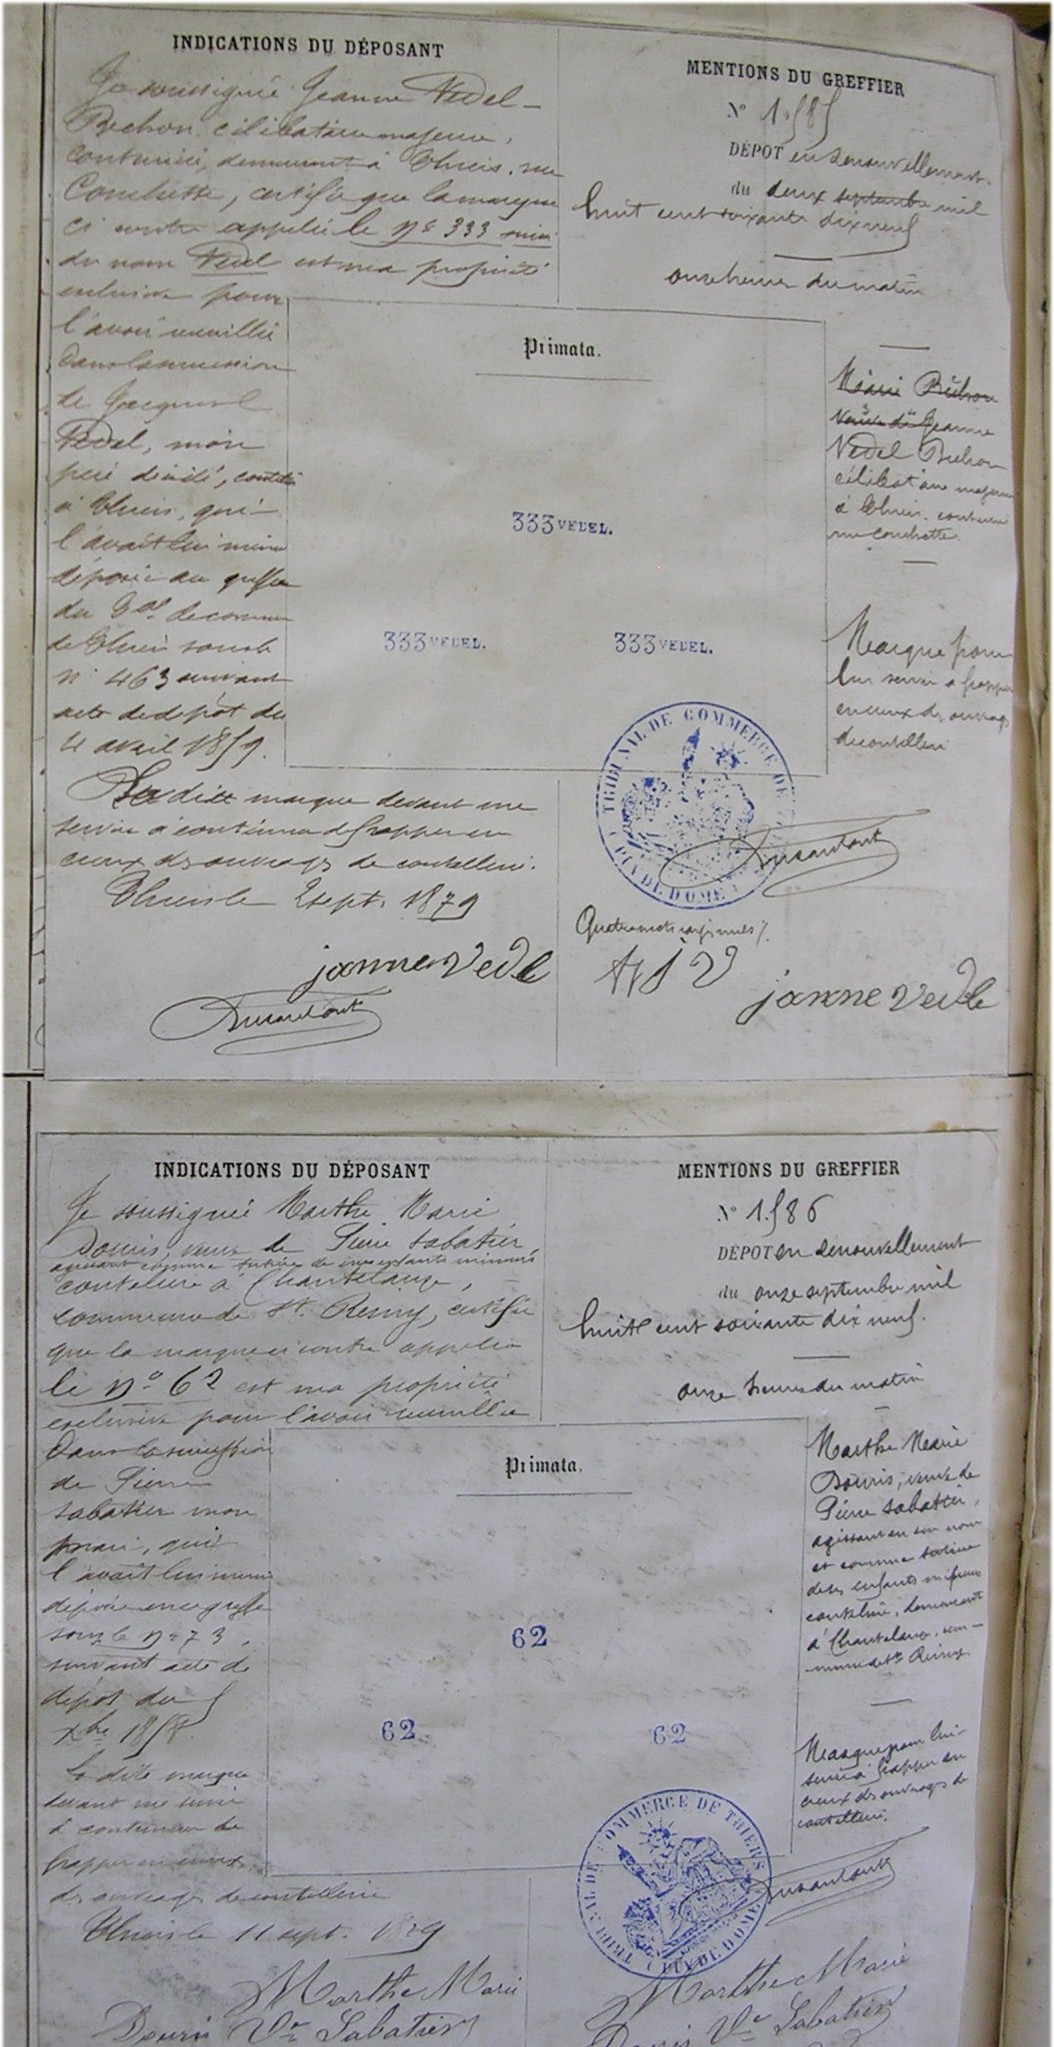 INDICATIONS DU DÉPOSANT
Je soussignée Jeanne Vedel-
Bechon célibataire majeure,
coutelière, demeurant à Thiers, rue
Conchette, certifie que la marque
ci contre appelée le No 333 suivi
du nom Vedel est ma propriété
exclusive pour
l'avoir recueillie
dans la succession
de Jacques
Vedel, mon
père décédé, coutelier
à Thiers, qui
l'avait lui même
déposée au greffe
du Tal de commerce
de Thiers sous le
n° 463 suivant
acte de dépôt du
4 avril 1859.
La dite marque devant me
servir à continuer de frapper en
creux des ouvrages de coutellerie.
Thiers le 2 sept. 1879
janne vedle
MENTIONS DU GREFFIER
No 1585
DÉPOT en renouvellement
du deux septembre mil
huit cent soixante dix neuf
onze heures du matin
Primata.
333 VEDEL.
333 VEDEL.
333 VEDEL.
Marie Bechon
veuve de Jeanne
Vedel Bechon
célibataire majeure
à Thiers, coutelière
rue Conchette.
Marque pour
lui servir à frapper
en creux des ouvrages
de coutellerie
TRIBUNAL DE COMMERCE DE
PUY DE DOME
Quatre mots rayés nuls
janne vedle
INDICATIONS DU DÉPOSANT
Je soussignée Marthe Marie
Douris, veuve de Pierre Sabatier,
agissant comme tutrice de mes enfants mineurs
coutelière à Chantelauze,
commune de St. Remy, certifie
que la marque ci contre appelée
le No 62 est ma propriété
exclusive pour l'avoir recueillie
dans la succession
de Pierre
Sabatier mon
mari, qui
l'avait lui même
déposée au greffe
sous le No 73,
suivant acte de
dépôt du 5
Xbre 1858.
La dite marque
devant me servir
à continuer de
frapper en creux
des ouvrages de coutellerie
Thiers le 11 sept. 1879
Marthe Marie
Douris Ve Sabatier
MENTIONS DU GREFFIER
No 1586
DÉPOT en renouvellement
du onze septembre mil
huit cent soixante dix neuf.
onze heures du matin
Primata.
62
62
62
Marthe Marie
Douris, veuve de
Pierre Sabatier,
agissant en son nom
et comme tutrice
de ses enfants mineurs
coutelière, demeurant
à Chantelauze, com-
mune de St Remy
Marque pour lui
servir à frapper en
creux des ouvrages de
coutellerie.
TRIBUNAL DE COMMERCE DE THIERS
PUY DE DOME
Marthe Marie
Douris Ve Sabatier